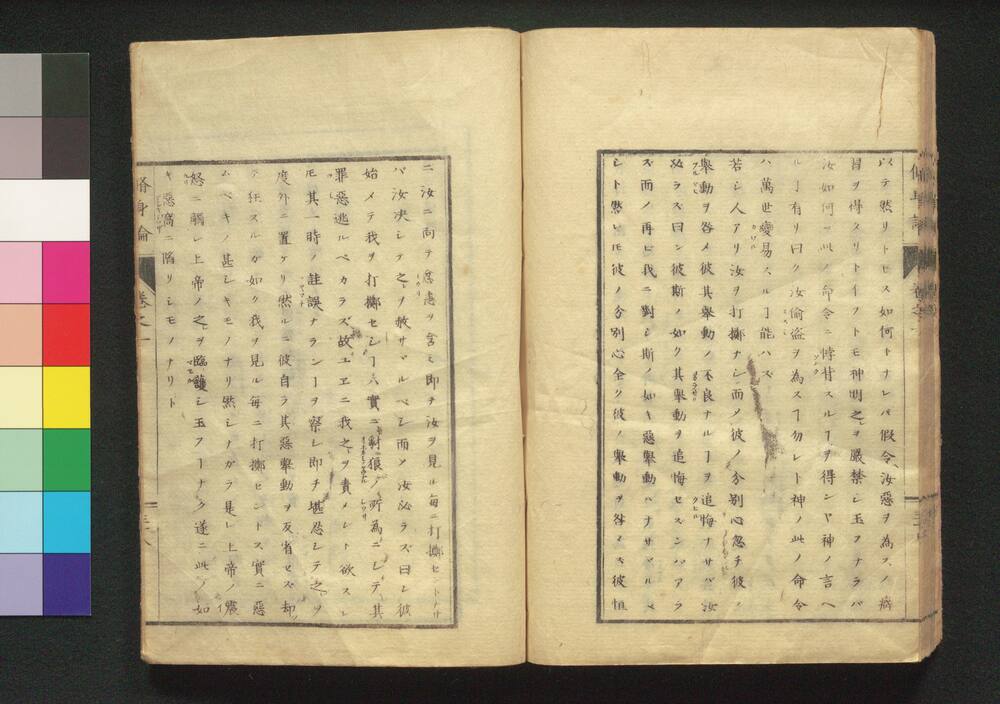 以テ然リトセス如何トナレバ假令汝惡ヲ為スノ癖
習ヲ得タリトイフトモ神明之ヲ嚴禁シ玉フナラバ
汝如何ソ此ノ命令ニ悖背スルヿヲ得ンヤ神ノ言ヘ
ルヿ有リ曰ク汝偷盗ヲ為スヿ勿レト神ノ此ノ命令
ハ萬世變易スルヿ能ハズ
若シ人アリ汝ヲ打擲ナシ而メ彼ノ分別心忽チ彼ノ
擧動ヲ咎メ彼其擧動ノ不良ナルヿヲ追悔ナサバ汝
必ラズ曰ン彼斯ノ如ク其擧動ヲ追悔セズンバアラ
ズ而ノ再ビ我ニ對シ斯ノ如キ惡擧動ハナサヾルベ
シト然レ𪜈彼ノ分別心全ク彼ノ擧動ヲ咎メズ彼恒
ニ汝ニ向テ忿恚ヲ含ミ即チ汝ヲ見ル毎ニ打擲セントナサ
バ汝决シテ之ヲ赦サヾルベシ而メ汝必ラズ曰シ彼
始メテ我ヲ打擲セシヿハ實ニ豺狼ノ所為ニシテ其
罪惡逃ルベカラズ故ユヱニ我之ヲ責メント欲スレ
𪜈其一時ノ詿誤ナランヿヲ察シ即チ堪忍シテ之ヲ
度外ニ置ケリ然ルニ彼自ラ其惡擧動ヲ反省セズ却
テ狂スルガ如ク我ヲ見ル毎ニ打擲セントス實ニ惡
ムベキノ甚シキモノナリ然シナガラ是レ上帝ノ震
怒ニ觸レ上帝ノ之ヲ臨護シ玉フヿナク遂ニ此ノ如
キ惡窩ニ陷リシモノナリト
脩身論
卷之一